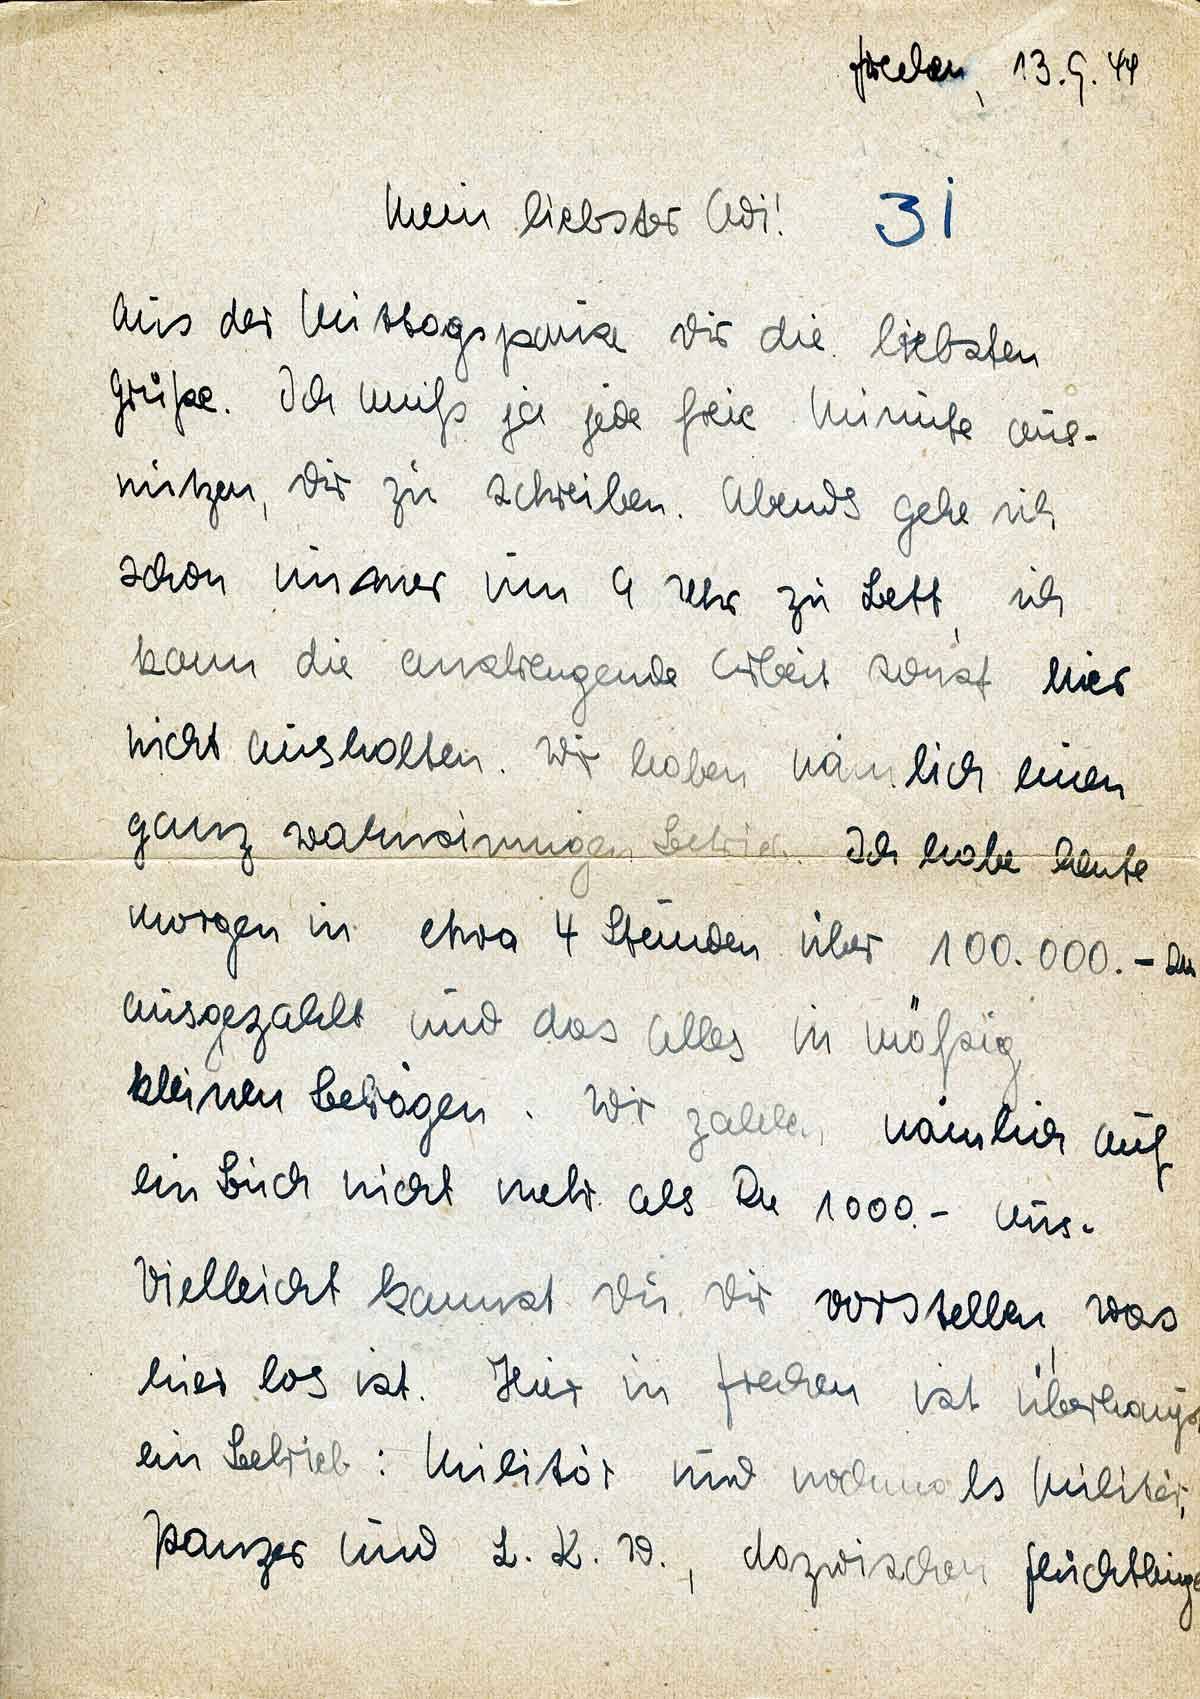 Frechen, 13.9.44
Mein liebster Adi! 31
Aus der Mittagspause Dir die liebsten
Grüße. Ich muß ja jede freie Minute aus-
nützen, Dir zu schreiben. Abends gehe ich
schon immer um 9 Uhr zu Bett, ich
kann die anstrengende Arbeit sonst hier
nicht aushalten. Wir haben nämlich einen
ganz wahnsinnigen Betrieb. Ich habe heute
morgen in etwa 4 Stunden über 100.000.- RM
ausgezahlt und das alles in mäßig
kleinen Beträgen. Wir zahlen nämlich auf
ein Buch nicht mehr als RM 1000.- aus.
Vielleicht kannst Du Dir vorstellen, was
hier los ist. Hier in Frechen ist überhaupt
ein Betrieb: Militär und nochmals Militär,
Panzer und L.K.W., dazwischen Flüchtlinge